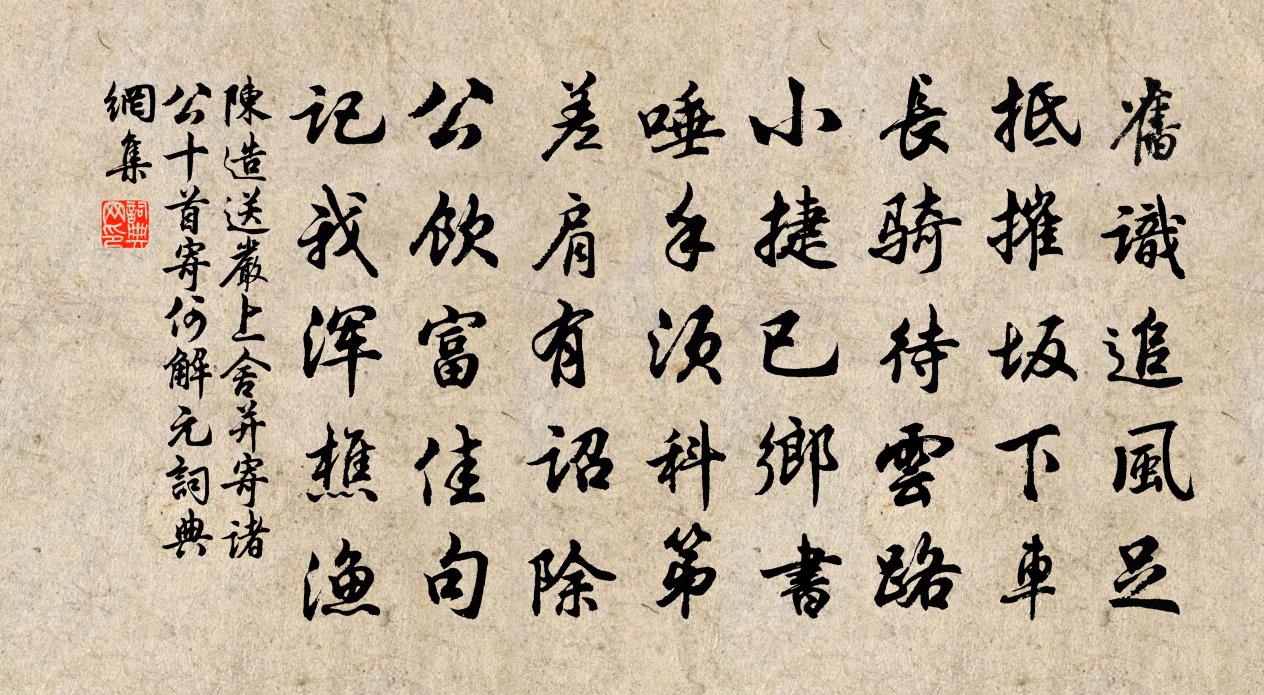 舊識追風足
抵摧坂下車
長騎待雲路
小捷已鄉書
唾手須科第
差肩有詔除
公飲富佳句
記我渾樵漁
陳造送嚴上舍并寄諸
公十首寄何解元詞典
網集
詞典網印